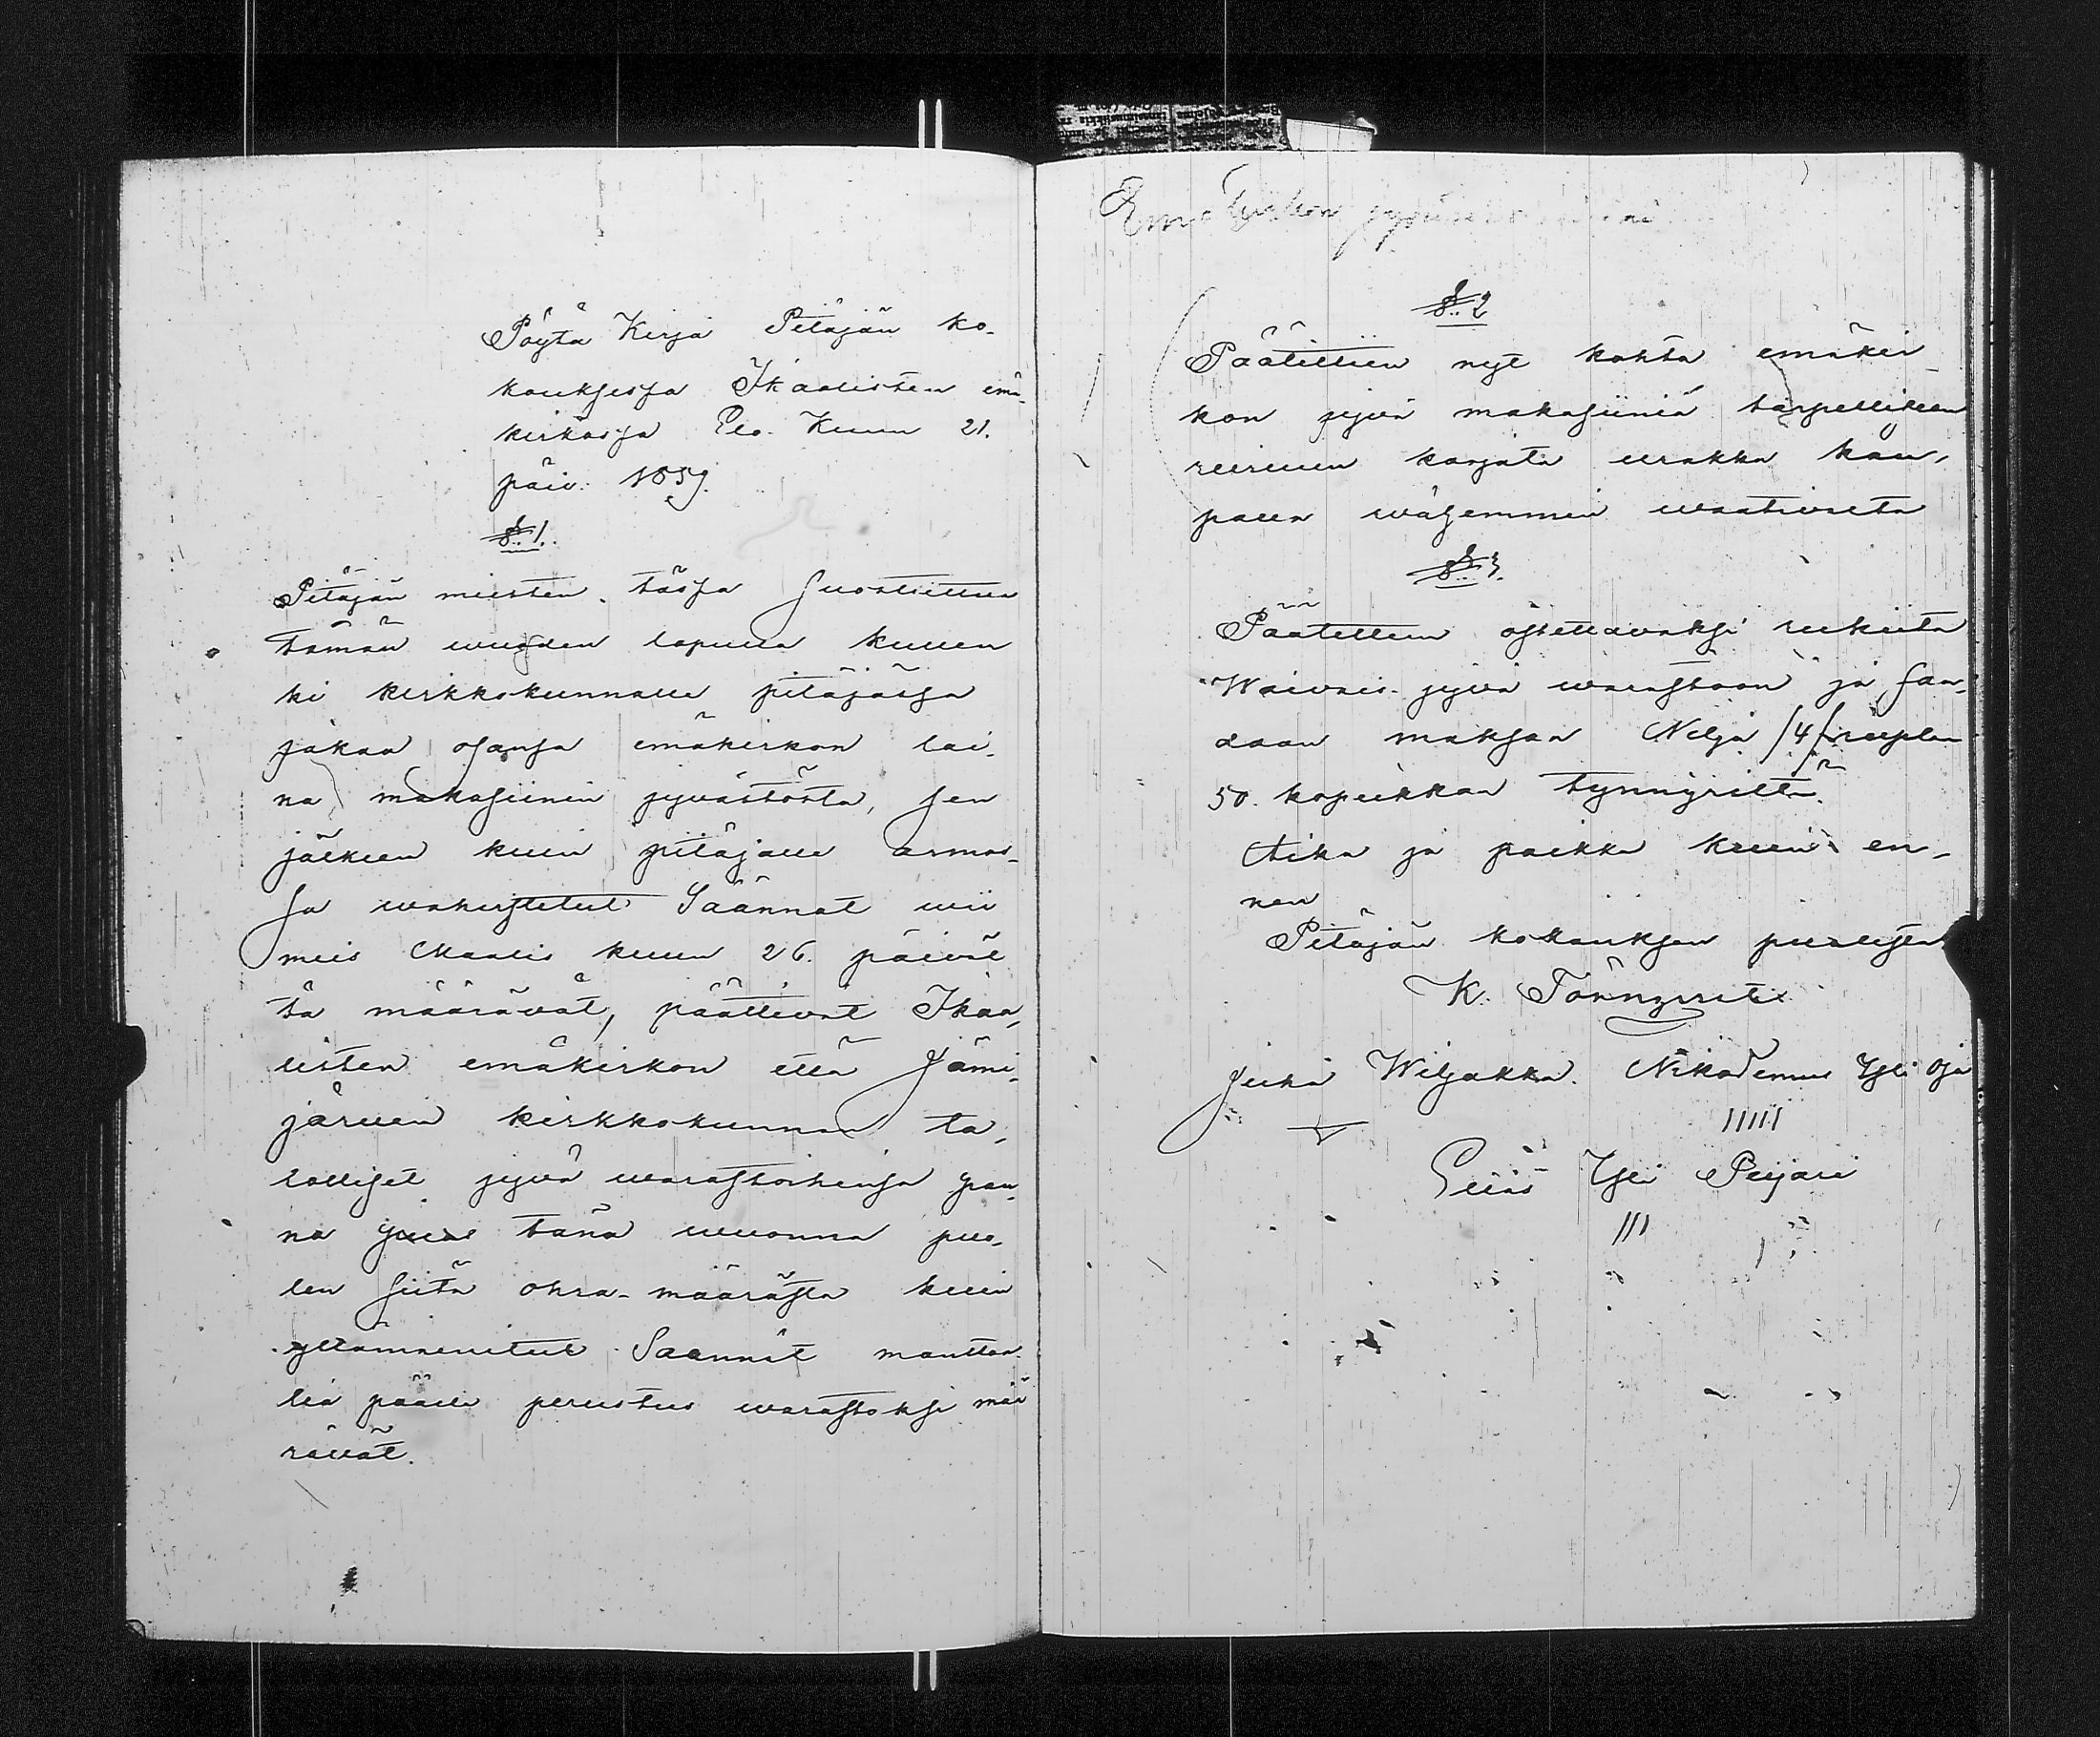 Pöytä Kirja Pitäjän ko-
kouksessa Ikaalisten emä-
kirkossa Elo Kuun 21.
päiv. 1859.
§ 1.
Pitäjän miesten tässä suostuttua
tämän wuoden lopulla kullen
ki kirkkokunnalle pitäjässä
jakaa osansa emäkirkon lai-
na makasiinin jywästöstä, sen
jälkeen kuin pitäjälle armos-
sa wahwistetut Säännöt wii
meis Maalis kuun 26. päiväl
tä määräävät, päättivät Ikaa-
listen emäkirkon että Jämi-
järven kirkkokunnan ta-
lolliset jywä warastoihinsa pan-
na tänä wuonna puo-
len siitä ohra-määrästä kuin
ylläm̄ainitut Säännöt manttaa-
lia päälle perustus warastoksi mää
räävät.
Emä kirkon
§ 2
Päätettiin nyt kohta emäkir-
kon jywä makasiiniä tarpeelliseen
ruumun korjata urakka kau-
palla wähemmin waativalta
§ 3.
Päätettiin ostettavaksi rukiita
Waivais-jywä warastoon ja saa-
daan maksaa Neljä /4/ ruplaa
50. kopeikkaa tynnyriltä.
Aika ja paikka kuin en-
nen
Pitäjän kokouksen puolesta
K. Törnqvist
Juha Wiljakka. Nikodemus Yli Oja
Eliās Yli Peijari